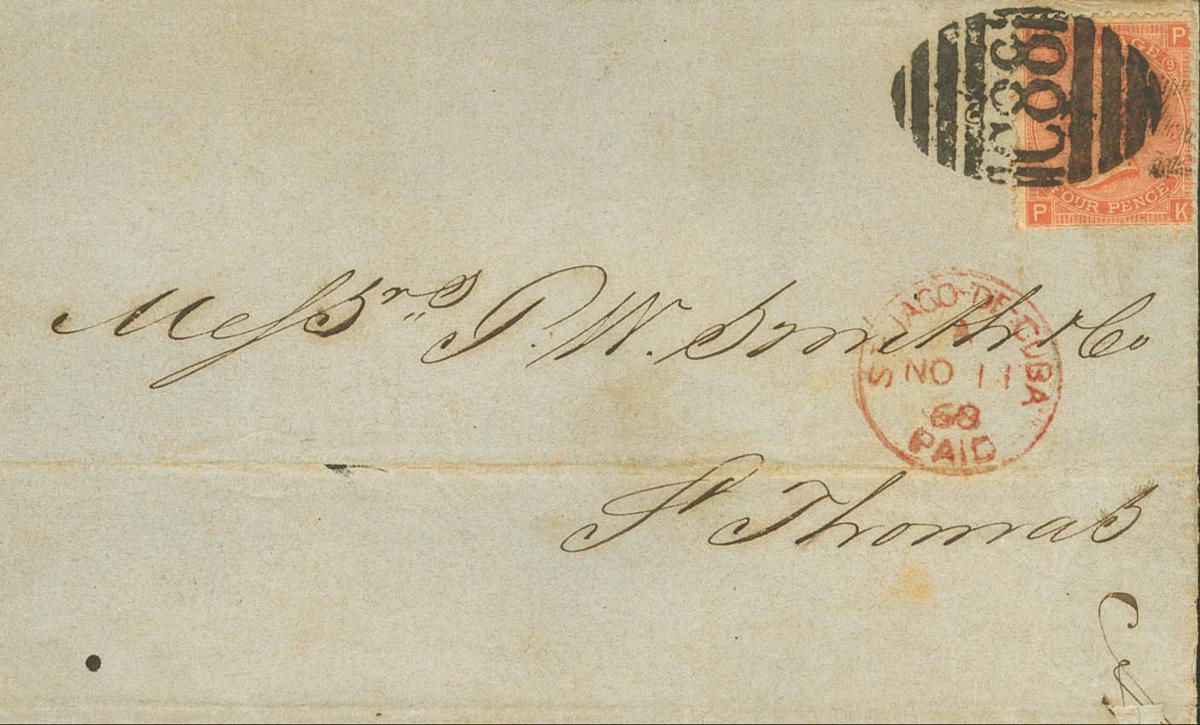 C88
P
9
FOUR PENCE
P K
Messrs. P. W. Smith & Co
ST JAGO-DE-CUBA
A
NO 11
68
PAID
St Thomas